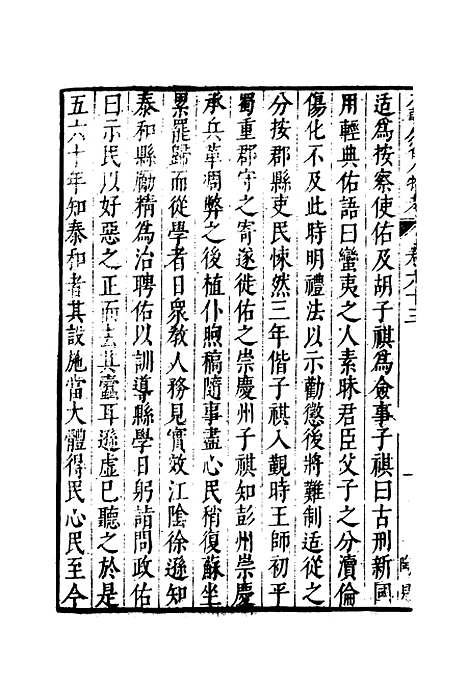 適為按察使佑及胡子祺為僉事子祺曰古刑新國
用輕典佑語曰蠻夷之人素昧君臣父子之分瀆倫
傷化不及此時明禮法以示勸懲後將難制适從之
分按郡縣吏民悚然三年偕子祺入覲時王師初平
蜀重郡守之寄遂徙佑之崇慶州子祺知彭州崇慶
承兵革凋弊之後植仆煦稿隨事盡心民稍復蘇坐
累罷歸而從學者日衆教人務見實效江陰徐遜知
泰和縣勵精為治聘佑以訓導縣學日躬請問政佑
曰示民以好惡之正而去其蠹耳遜虛已聽之於是
五六十年知泰和者其設施當大體得民心民至今